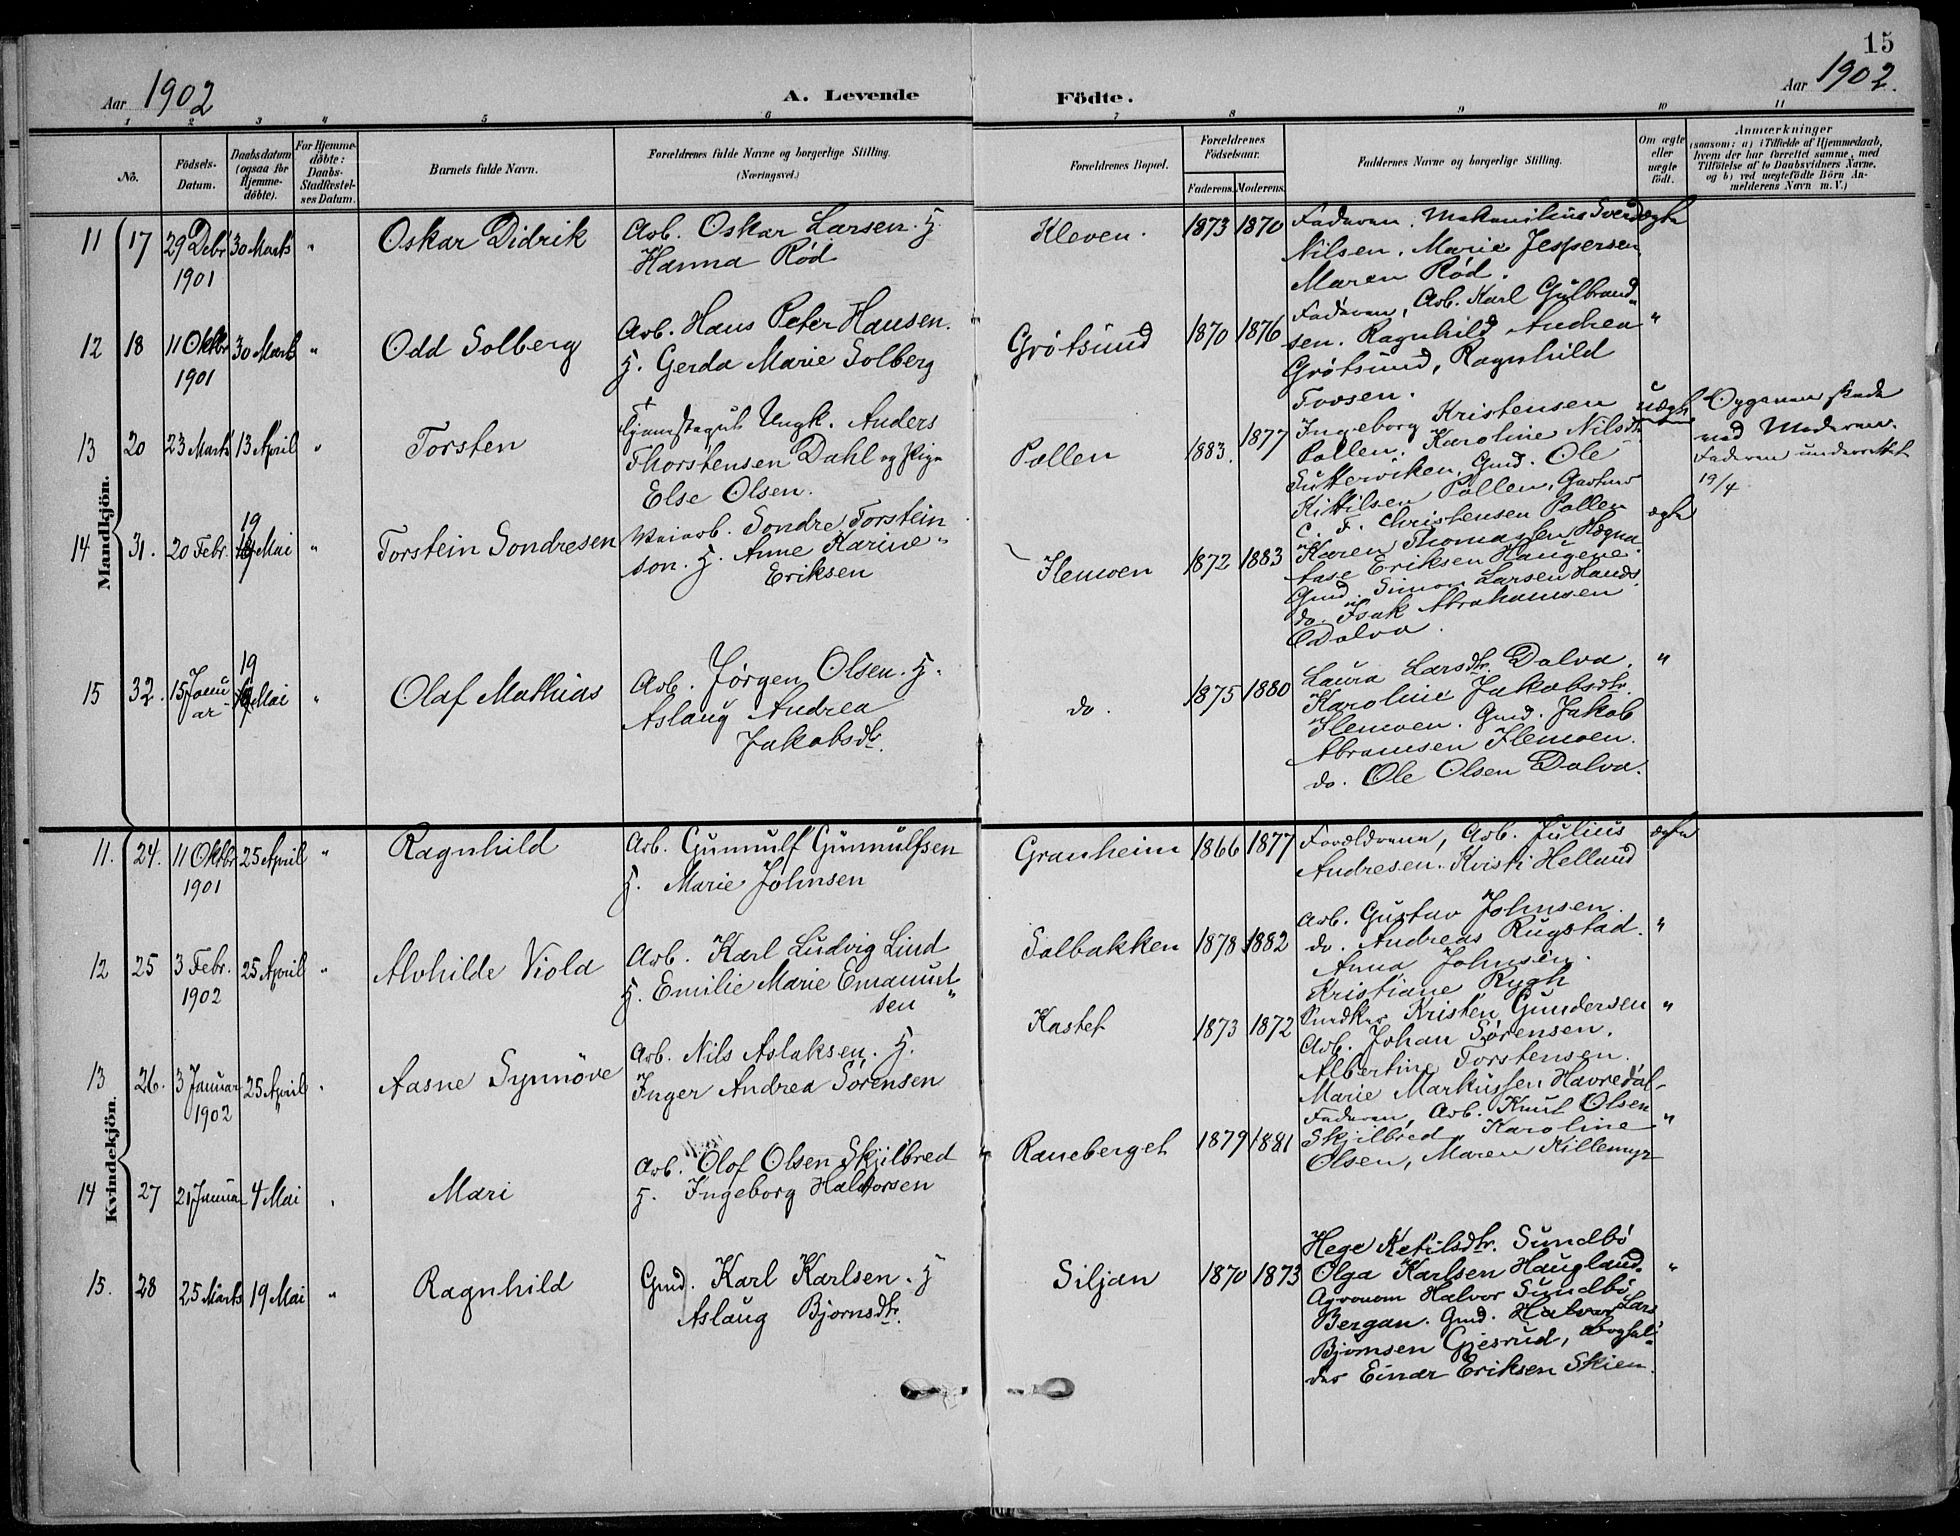 15
Aar 1902
A. Levende
Födte.
Aar 1902.
1 2 3 4 5 6 7 8 9 10 11
No.
Födsels-
Datum.
Daabsdatum
(ogsaa for
Hjemme-
döbte).
For Hjemme-
döbte:
Daabs-
Stadfæstel-
ses Datum.
Barnets fulde Navn.
Forældrenes fulde Navne og borgerlige Stilling.
(Næringsvei.)
Forældrenes Bopæl.
Forældrenes
Födselsaar.
Faderens. Moderens.
Faddernes Navne og borgerlige Stilling.
Om ægte
eller
uægte
födt.
Anmærkninger
(saasom: a) i Tilfælde af Hjemmedaab,
hvem der har forrettet samme, med
Tilföielse af to Daabsvidners Navne,
og b) ved uægtefödte Börn An-
melderens Navn m. V.)
Mandkjön.
11 17 29 Debr 1901 30 Marts " Oskar Didrik
Arb. Oskar Larsen. H.
Hanna Rød
Kleven. 1873 1870
Faderen. Nilsen. Marie Jespersen
Maren Rød.
ægte
12 18 11 Oktbr 1901 30 Marts " Odd Solberg
Arb. Hans Peter Hansen.
H. Gerda Marie Solberg
Grøtsund 1870 1876
Faderen, Arb. Karl Gulbrand-
sen. Ragnhild Andrea
Grøtsund, Ragnhild
Tovsen.
"
13 20 23 Marts 13 April " Torsten
Ungk. Anders
Thorstensen Dahl og Pige
Else Olsen.
Pollen 1883. 1877
Ingeborg Kristensen
Pollen. Karoline Nilsdtr
Gmd. Ole
Kittilsen Pollen,
C. F. Christensen Pollen
uægte
Opgaven skede
ved Moderen.
Faderen underrettet
19/4
14 31. 20 Febr. 19 Mai " Torstein Sondresen
Veiarb. Sondre Torstein
son. H. Anne Karine
Eriksen
Flemoen 1872 1883
Karen Thomassen
Eriksen Haugene.
Gmd. Simon Larsen
do. Isak Abrahamsen
Dalva.
ægte
15 32. 15 Janu
ar 19 Mai " Olaf Mathias
Arb. Jørgen Olsen. H.
Aslaug Andrea
Jakobsdtr.
do. 1875 1880
Laura Larsdtr. Dalva.
Karoline Jakobsdtr.
Flemoen. Gmd. Jakob
Abramsen Flemoen.
do. Ole Olsen Dalva.
"
Kvindekjön.
11. 24. 11 Oktbr 1901 25 April " Ragnhild
Arb. Gunnulf Gunnulfsen
H. Marie Johnsen
Granheim 1866 1877
Forældrene, Arb. Julius
Andresen. Kristi Helland
ægte
12 25 3 Febr. 1902 25 April " Alvhilde Viola
Arb. Karl Ludvig Lind
H. Emilie Marie Emanuel
sen "
Solbakken 1878 1882
Arb. Gustav Johnsen.
do. Andreas Rugstad.
Anna Johnsen.
Kristiane Rygh
"
13 26. 3 Januar 1902 25 April " Aasne Synnöve
Arb. Nils Aslaksen. H.
Inger Andrea Sørensen
Kastet 1873 1872
Snedker Kristen Gundersen
Arb. Johan Sørensen.
Albertine Torstensen.
Marie Markussen Havredal-
"
14 27 21 Januar 4 Mai " Mari
Arb. Olof Olsen Skjilbred
H. Ingeborg Halvorsen
Raneberget 1879 1881
Faderen, Arb. Knut Olsen
Skjilbred Karoline
Olsen, Maren Killemyr
"
15. 28 25 Marts 19 Mai " Ragnhild
Gmd. Karl Karlsen. H
Aslaug Bjørnsdtr.
Siljan 1870 1873
Hege Ketilsdtr. Sundbö
Olga Karlsen Haugland.
Agronom Halvor Sundbö,
Bergan. Gmd. Halvor Lars
Bjørnsen Gjesrud,
Einar Eriksen Skien.
"